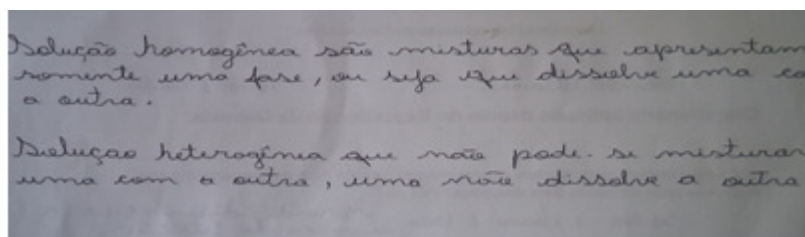 Solução homogênea são misturas que apresentam
somente uma fase, ou seja que dissolve uma co
a outra.
Soluçao heterogênia que não pode. se misturar
uma com a outra, uma não dissolve a outra